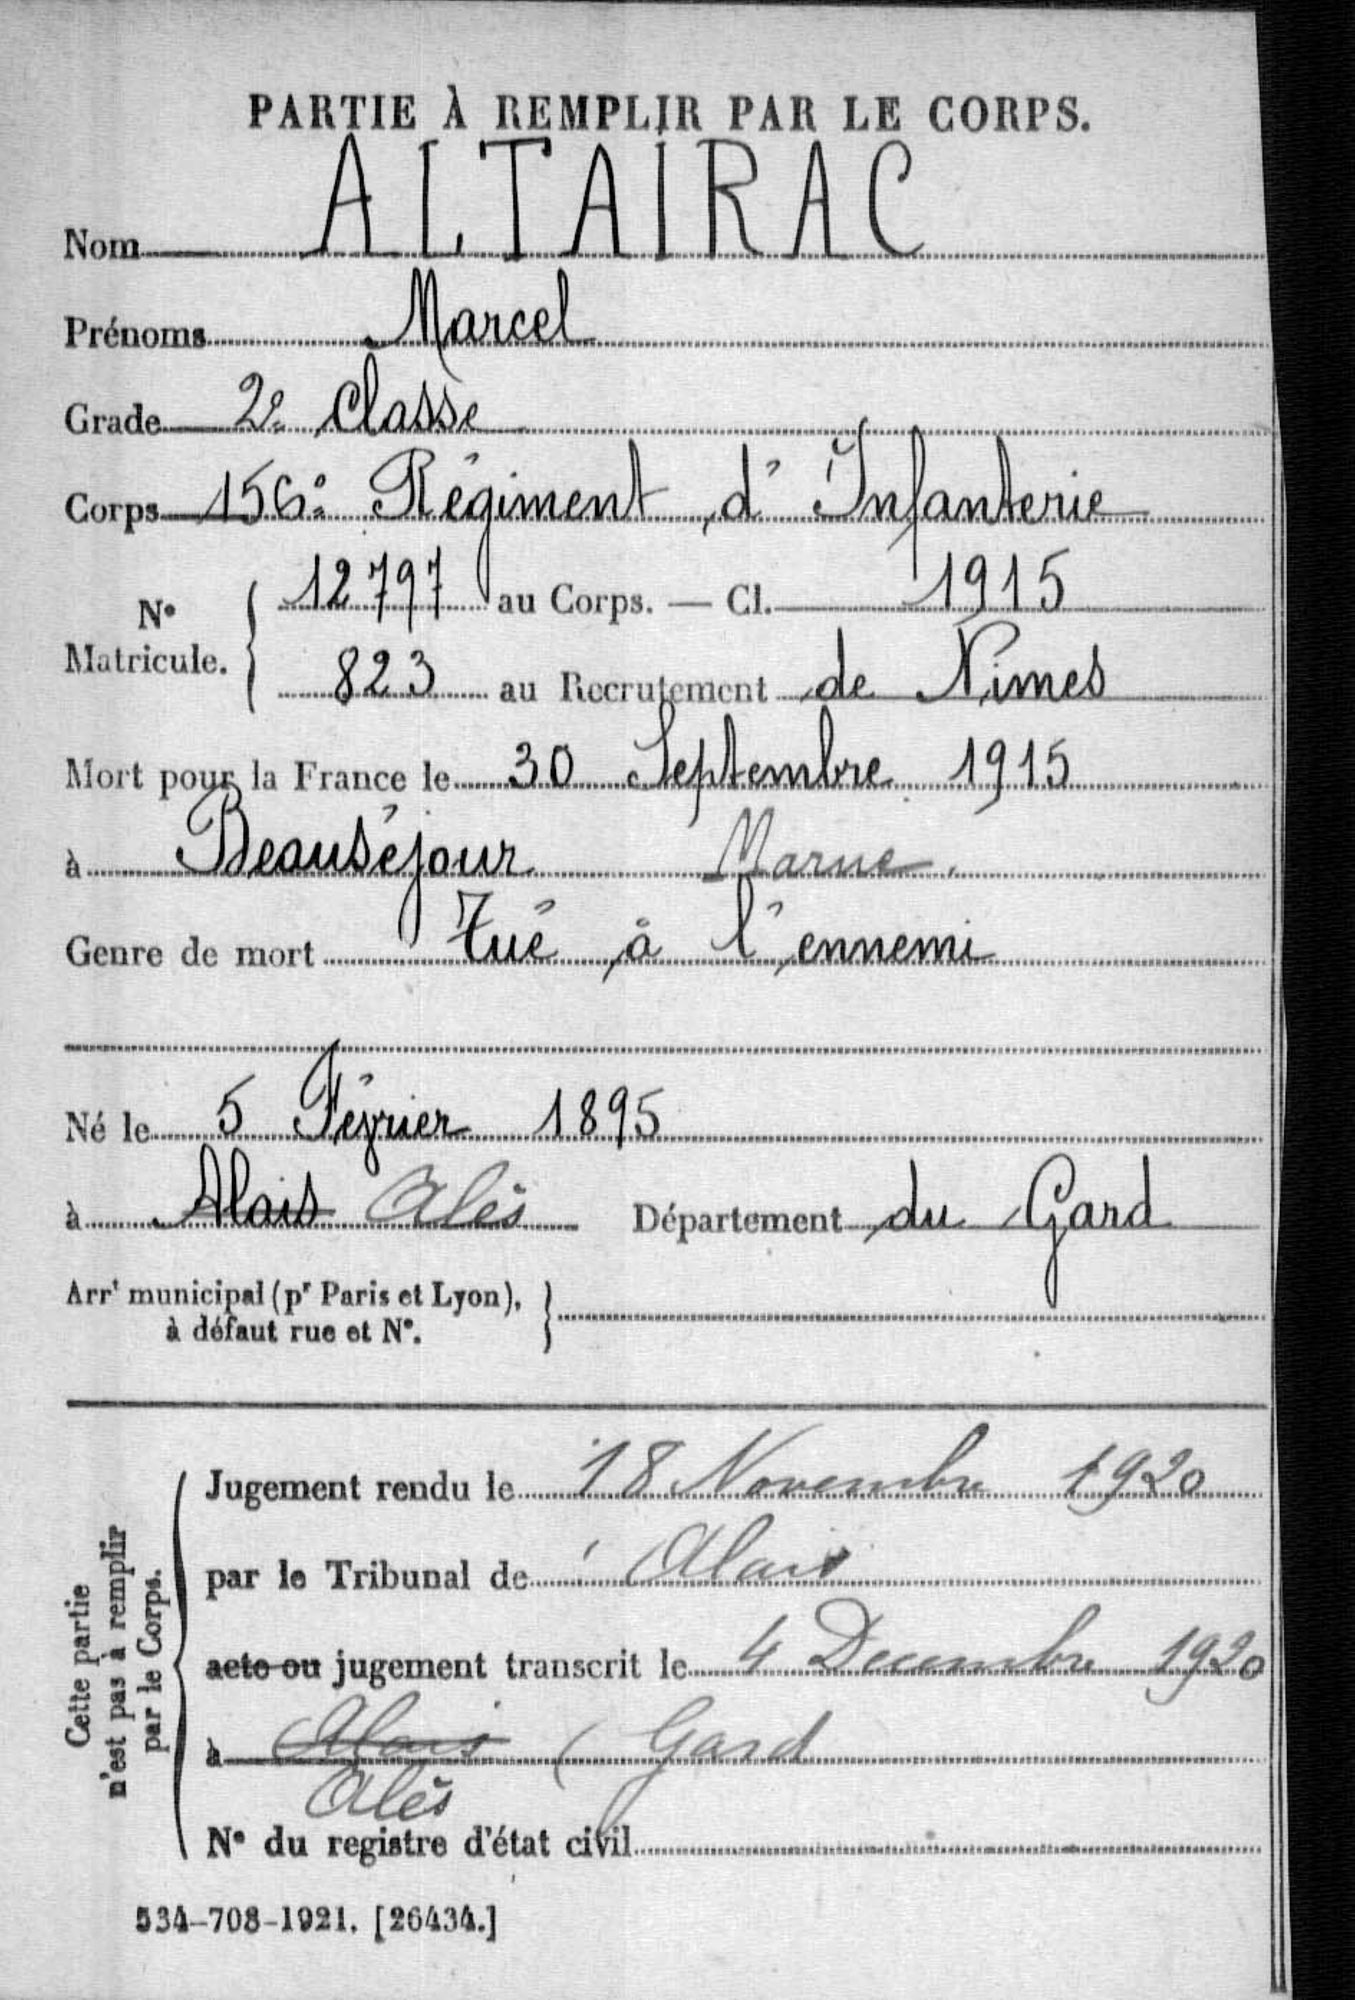 PARTIE À REMPLIR PAR LE CORPS.
Nom ALTAIRAC
Prénoms Marcel
Grade 2e Classe
Corps 156e Régiment d'Infanterie
N° Matricule. 12797 au Corps. — Cl. 1915
823 au Recrutement de Nimes
Mort pour la France le 30 Septembre 1915
à Beauséjour Marne.
Genre de mort Tué à l'ennemi
Né le 5 Février 1895
à Alais Alès Département du Gard
Arrt municipal (pr Paris et Lyon),
à défaut rue et N°.
Cette partie
n'est pas à remplir
par le Corps.
Jugement rendu le 18 Novembre 1920
par le Tribunal de Alais
acte ou jugement transcrit le 4 Decembre 1920
à Alais (Gard
Alès
N° du registre d'état civil
534-708-1921. [26434.]